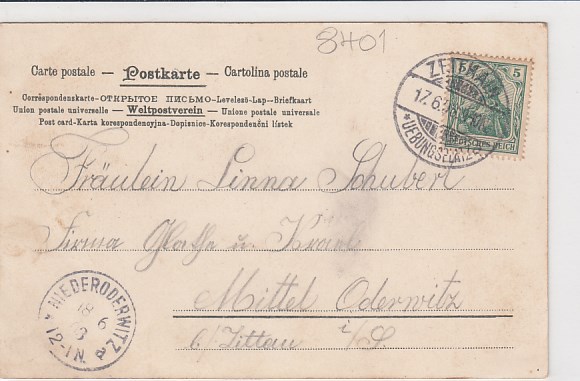 8401
Carte postale — Postkarte — Cartolina postale
Correspondenskarte-ОТКРЫТОЕ ПИСЬМО-Levelező-Lap-Briefkaart
Union postale universelle — Weltpostverein — Unione postale universale
Post card-Karta korespondencyjna-Dopisnice-Korespondenční lístek
5
17.6.
*UEBUNGSPLATZ
DEUTSCHES REICH
Fräulein Linna Schubert
Firma u.
Mittel Oderwitz
b/Zittau i/S
NIEDERODERWITZ
18
6
12-1N.